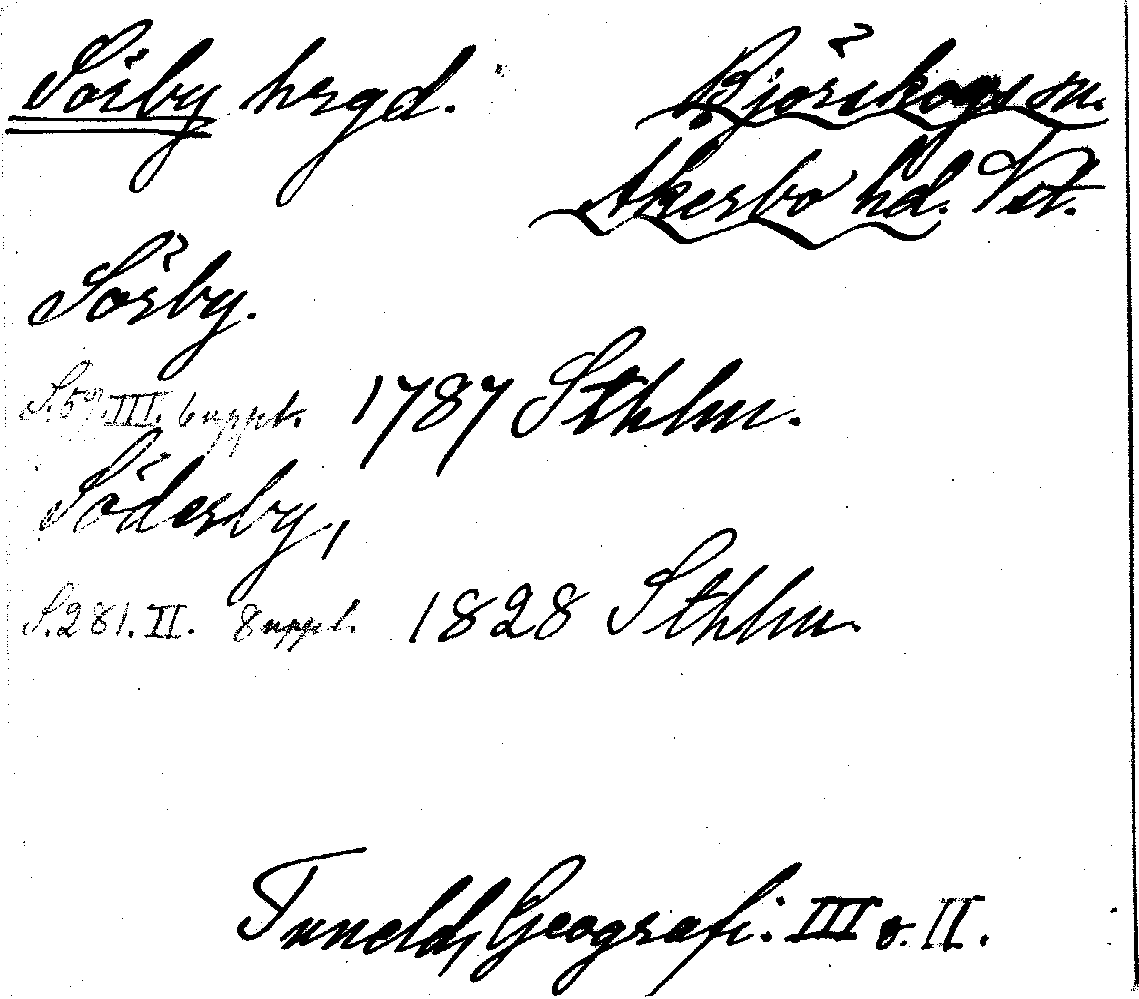 Sörby hrgd. Björskogs sn.
Åkerbo hd. Vst.
Sörby.
S. 59. III. 6 uppl. 1787 Sthlm.
Söderby,
S. 281. II. 8 uppl. 1828 Sthlm.
Tuneld, Geografi. III o. II.